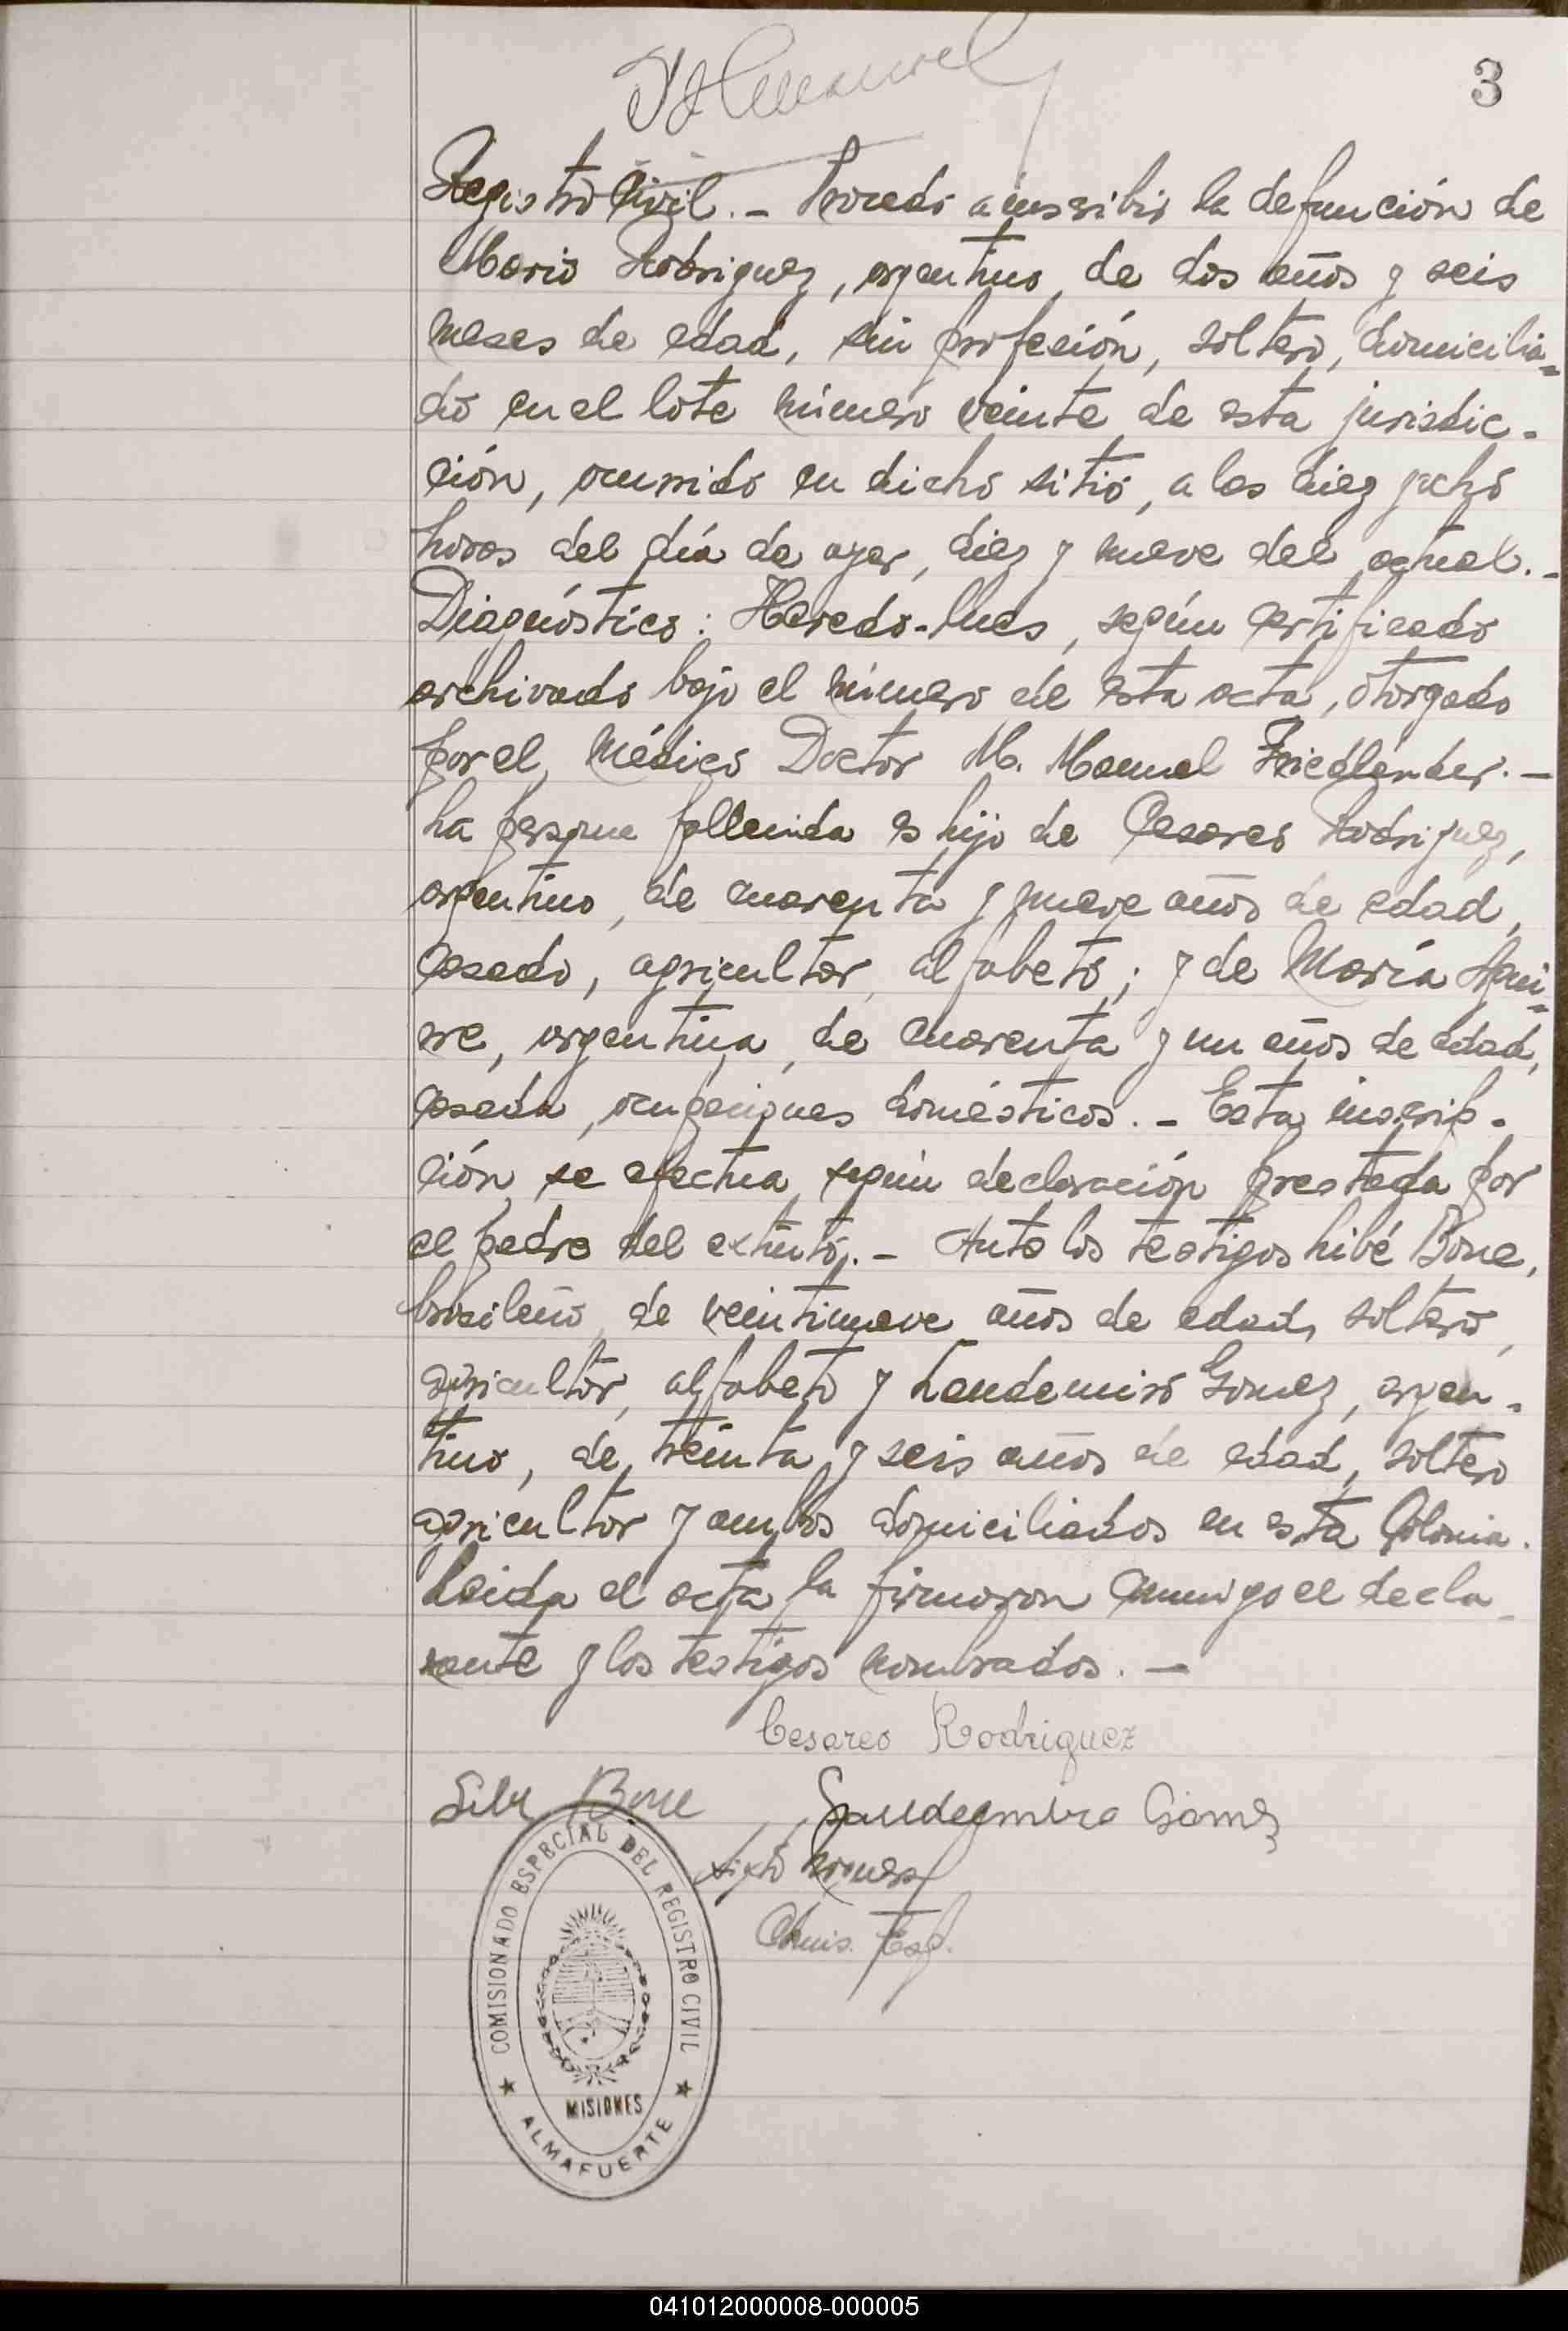 3
Registro Civil.- Procedo a inscribir la defunción de
Mario Rodriguez, argentino, de dos años y seis
meses de edad, sin profesión, soltero, domicilia=
do en el lote número veinte de esta jurisdic-
ción, ocurrido en dicho sitio, a las diez y ocho
horas del día de ayer, diez y nueve del actual.-
Diagnóstico: Heredo-lues, según certificado
archivado bajo el número de esta acta, otorgado
por el médico Doctor M. Manuel Friedlander.-
La persona fallecida es hijo de Cesareo Rodriguez,
argentino, de cuarenta y nueve años de edad,
casado, agricultor, alfabeto; y de María Agui=
rre, argentina, de cuarenta y un años de edad,
casada, ocupaciones domésticas.- Esta inscrip-
ción se efectua según declaración prestada por
el padre del extinto.- Ante los testigos Libé Bone,
brasileño, de veintinueve años de edad, soltero,
agricultor, alfabeto y Laudemiro Gomez, argen-
tino, de treinta y seis años de edad, soltero
agricultor y ambos domiciliados en esta Colonia.
Leida el acta la firmaron conmigo el decla-
rante y los testigos nombrados.-
Cesareo Rodriguez
Bone
Gomez
Comis. Esp.
COMISIONADO ESPECIAL DEL REGISTRO CIVIL
MISIONES
ALMAFUERTE
041012000008-000005